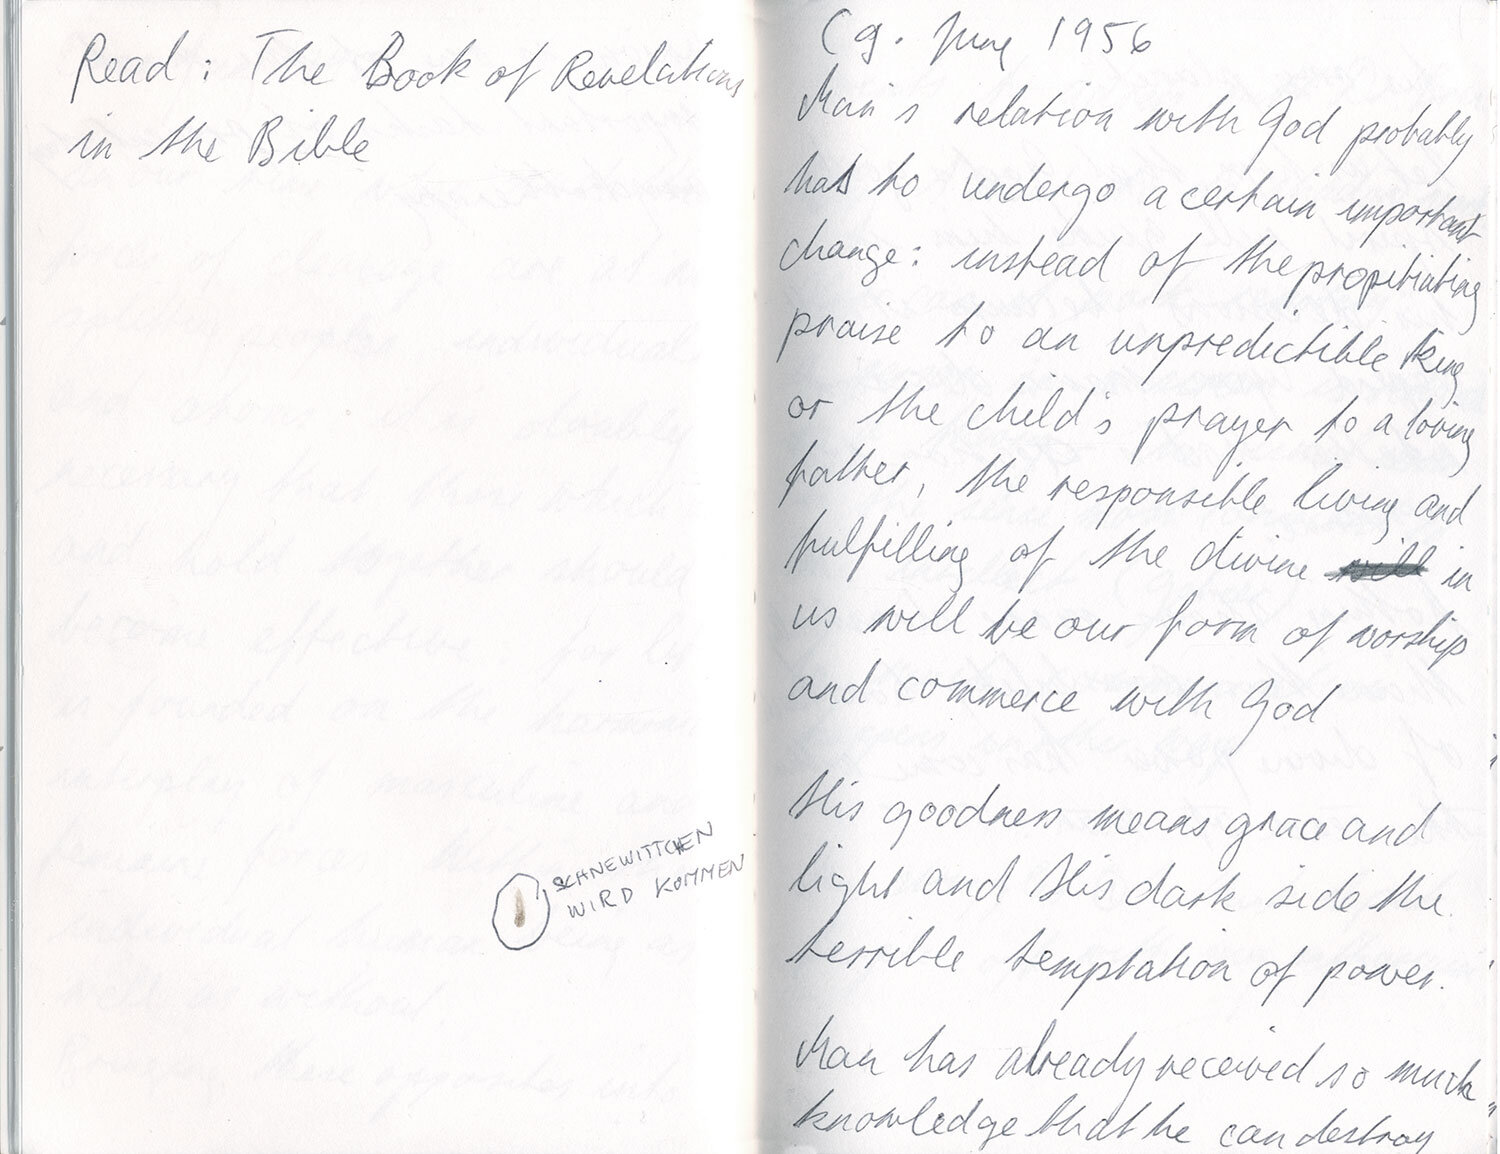 Read : The Book of Revelations
in the Bible
SCHNEWITTCHEN
WIRD KOMMEN
Cg. June 1956
Man's relation with God probably
has to undergo a certain important
change: instead of the propitiating
praise to an unpredictible king
or the child's prayer to a loving
father, the responsible living and
fulfilling of the divine will in
us will be our form of worship
and commerce with God
His goodness means grace and
light and His dark side the
terrible temptation of power.
Man has already received so much
knowledge that he can destroy